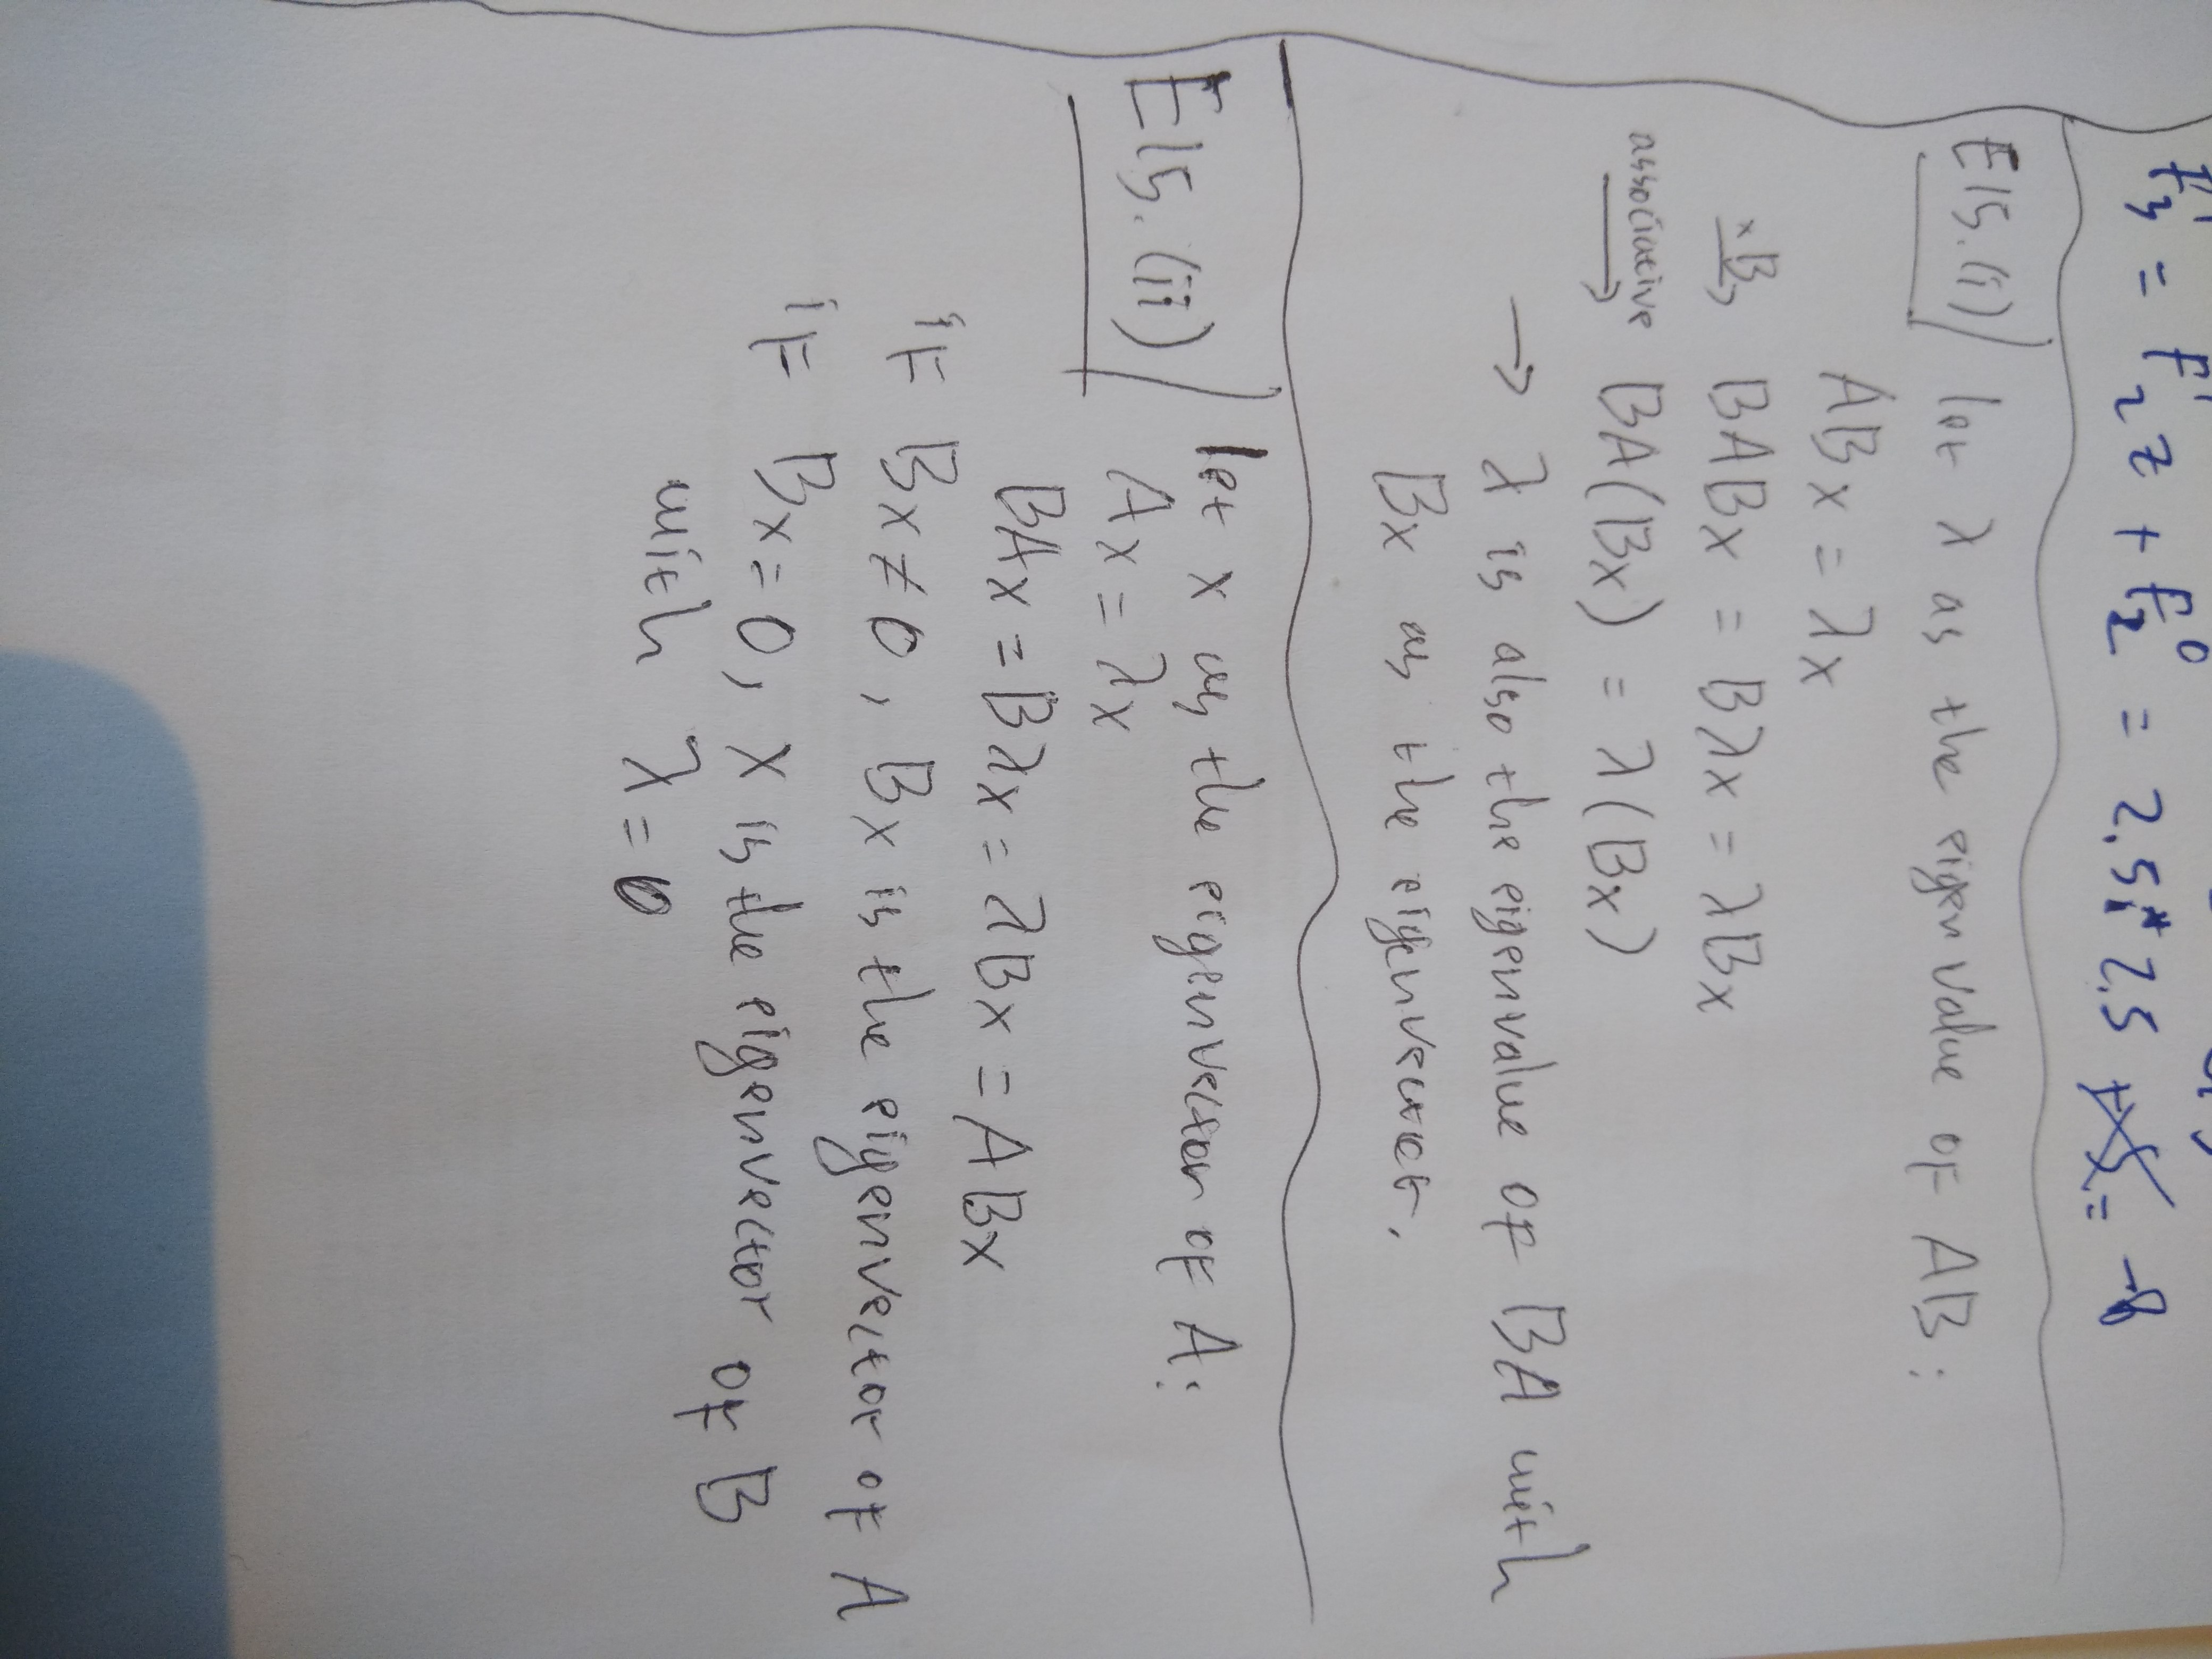 F₃¹ = F₂¹ z + F₂⁰ = 2.5i * 2.5 = -8
E15.(i) let λ as the eigenvalue of AB:
ABx = λx
×B→ BABx = Bλx = λBx
associative → BA(Bx) = λ(Bx)
→ λ is also the eigenvalue of BA with
Bx as the eigenvector.
E15.(ii) let x as the eigenvector of A:
Ax = λx
BAx = Bλx = λBx = ABx
if Bx ≠ 0, Bx is the eigenvector of A
if Bx = 0, x is the eigenvector of B
with λ = 0